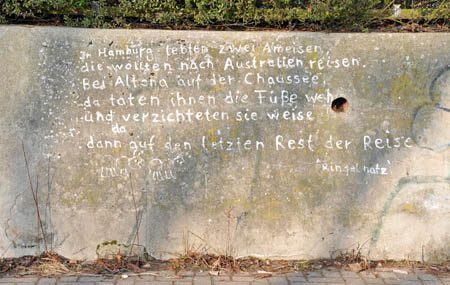 In Hamburg lebten zwei Ameisen,
die wollten nach Australien reisen.
Bei Altona auf der Chaussee,
da taten ihnen die Füße weh,
und verzichteten sie weise
da
dann auf den letzten Rest der Reise
"Ringelnatz"